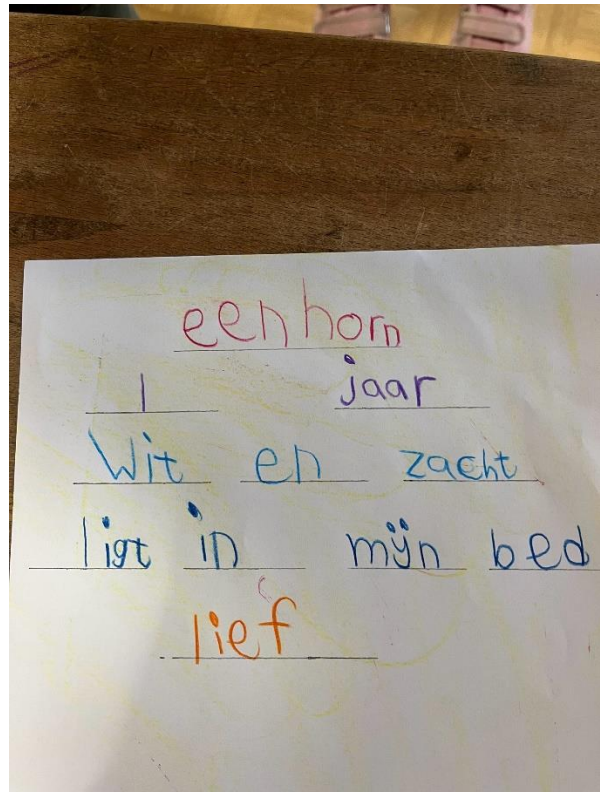 eenhorn
1 jaar
Wit en zacht
ligt in mijn bed
lief